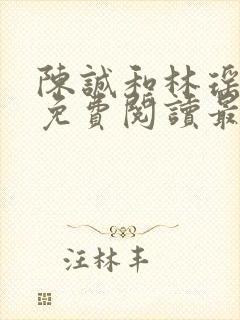 陳誠和林瑤
免費閱讀最
汪林丰